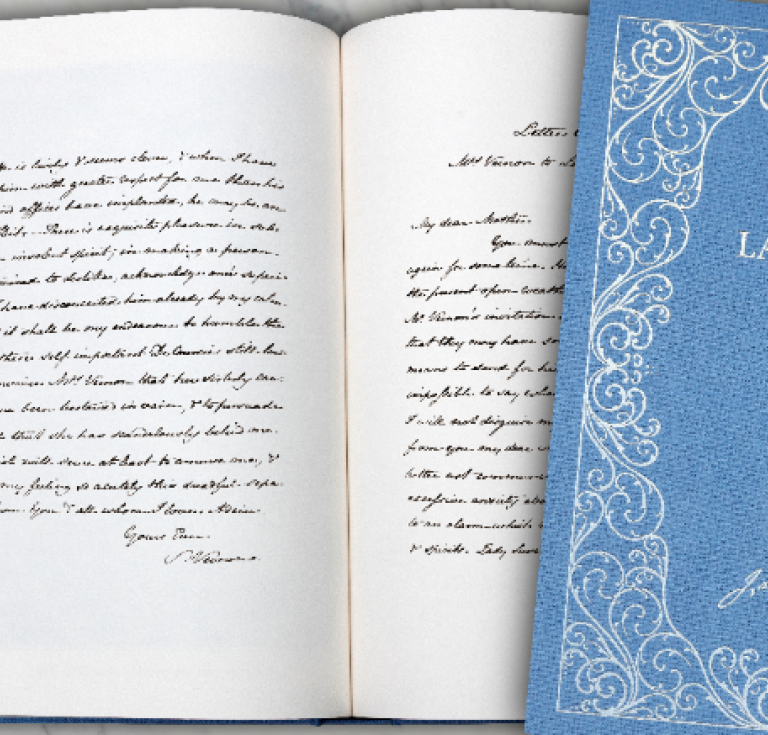 is lively & seems clever, & when I have
him with greater respect for me than his
kind offices have implanted, he may be an
Flirt. There is exquisite pleasure in sub-
insolent spirit; in making a person
to dislike, acknowledge one's superi-
I have disconcerted him already by my calm
it shall be my endeavour to humble the
these self important De Courcies still low-
Mrs Vernon that her sisterly cau-
been bestowed in vain, & to persuade
that she has scandalously belied me.
will serve at least to amuse me, &
my feeling so acutely this dreadful sepa-
You & all whom I love. Adieu
Yours Ever
S. Vernon
Letter
Mrs Vernon to
My dear Mother
You must
again for some time.
the present open weather
Mr Vernon's invitation
that they may have some
means to send for
impossible to say what
I will not disguise
from you my dear
better not commun
excessive anxiety
to an alarm which
& spirits. Lady Susan
LA